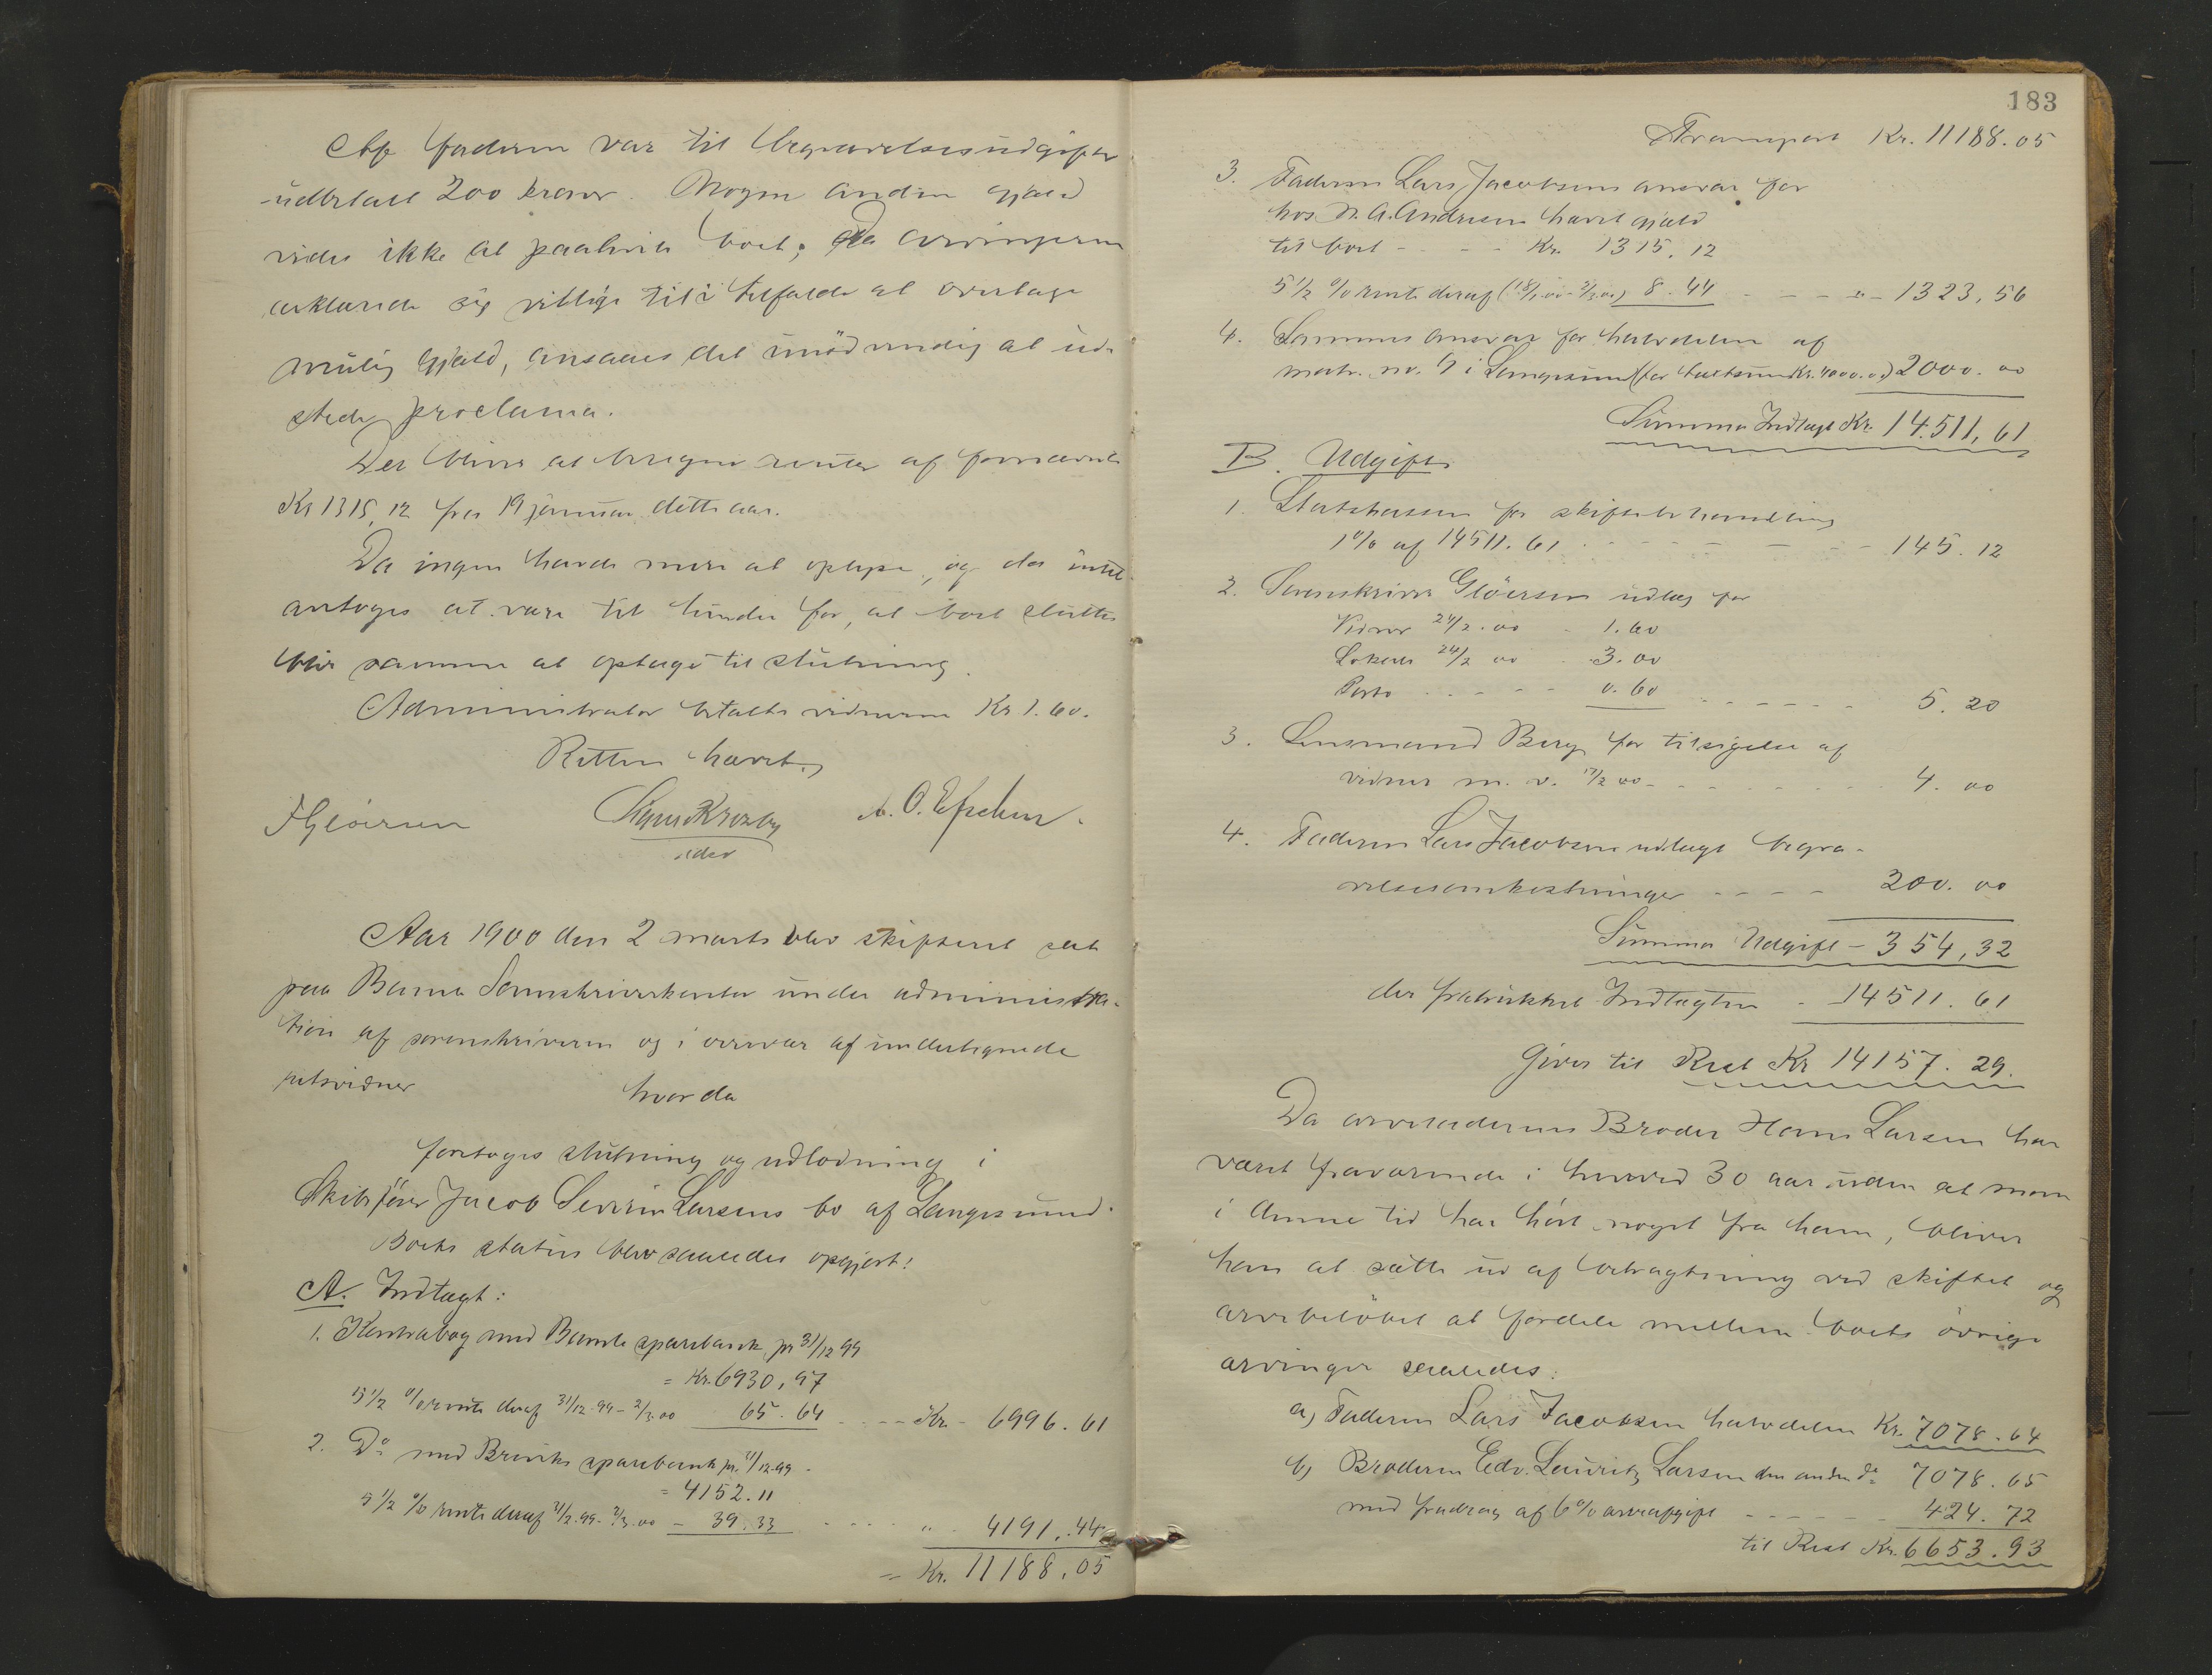 Af faderen var til begravelsesudgifter
udbetalt 200 kroner. Nogen anden gjæld
vides ikke at paahvile boet; da arvingerne
erklærede sig villige til i tilfælde at overtage
mulig gjæld, ansaaes det unødvendig at ud-
stede proclama.
Der bliver at beregne renter af fornævnte
Kr 1315,12 fra 19 januar dette aar.
Da ingen havde mere at oplyse, og da intet
antoges at være til hinder for, at boet sluttes
blir samme at optage til slutning.
Administrator betalte vidnerne Kr 1.60.
Retten hævet.
FGløersen
A. O.
Aar 1900 den 2 marts blev skifteret sat
paa Bamle Sorenskriverkontor under administra-
tion af sorenskriveren og i overvær af undertegnede
retsvidner
hvorda
foretoges slutning og udlodning i
Skibsfører Jacob Severin Larsens bo af Langesund.
Boets status blev saaledes opgjort:
A. Indtægt:
1. Kontrabog med Bamle sparebank pr 31/12 99
= Kr. 6930,97
5 1/2 % rente deraf 31/12-99 - 2/3.00 65.64 - - - - Kr - 6996.61
2. Do med Breviks sparebank pr. 31/12.99 -
= 4152.11
5 1/2 % rente deraf 31/12.99 - 2/3.00 - 39.33 - - - - " - 4191.44
= Kr. 11188.05
183
Transport Kr. 11188.05
3. Faderen Lars Jacobsens ansvar for
hos N. A. Andresen hævet gjæld
til boet - - - - Kr. 1315.12
5 1/2 % rente deraf (18/1.00-2/3.00) 8.44 - - - " - 1323,56
4. Sammes ansvar for halvdelen af
matr. no. 9 i Langesund (for takstsum Kr. 4000.00) 2000.00
Summa Indtægt Kr. 14511,61
B. Udgifter
1. Statskassen for skiftebehandling
1% af 14511.61 - - - - - - - 145.12
2. Sorenskriver Gløersens udlæg for
Vidner 24/2.00 - 1.60
Lokale 24/2 00 - 3.00
Porto - - - - - 0.60 - - - - - - 5.20
3. Lensmand Berg for tilsigelse af
vidner m. v. 17/2 00 - - - - - - - - 4.00
4. Faderen Lars Jacobsens udlagte begra-
velsesomkostninger - - - - 200.00
Summa Udgift - 354,32
der fratrukket Indtægten - 14511.61
giver til Rest Kr 14157.29.
Da arveladerens Broder Hans Larsen har
været fraværende i henved 30 aar uden at man
i denne tid har hørt noget fra ham, bliver
han at sætte ud af betragtning ved skiftet og
arvebeløbet at fordele mellem boets øvrige
arvinger saaledes:
a) Faderen Lars Jacobsen halvdelen Kr. 7078.64
b) Broderen Edv. Lauritz Larsen den anden do 7078.65
med fradrag af 6% arveafgift - - - - - - 424.72
til Rest Kr. 6653.93